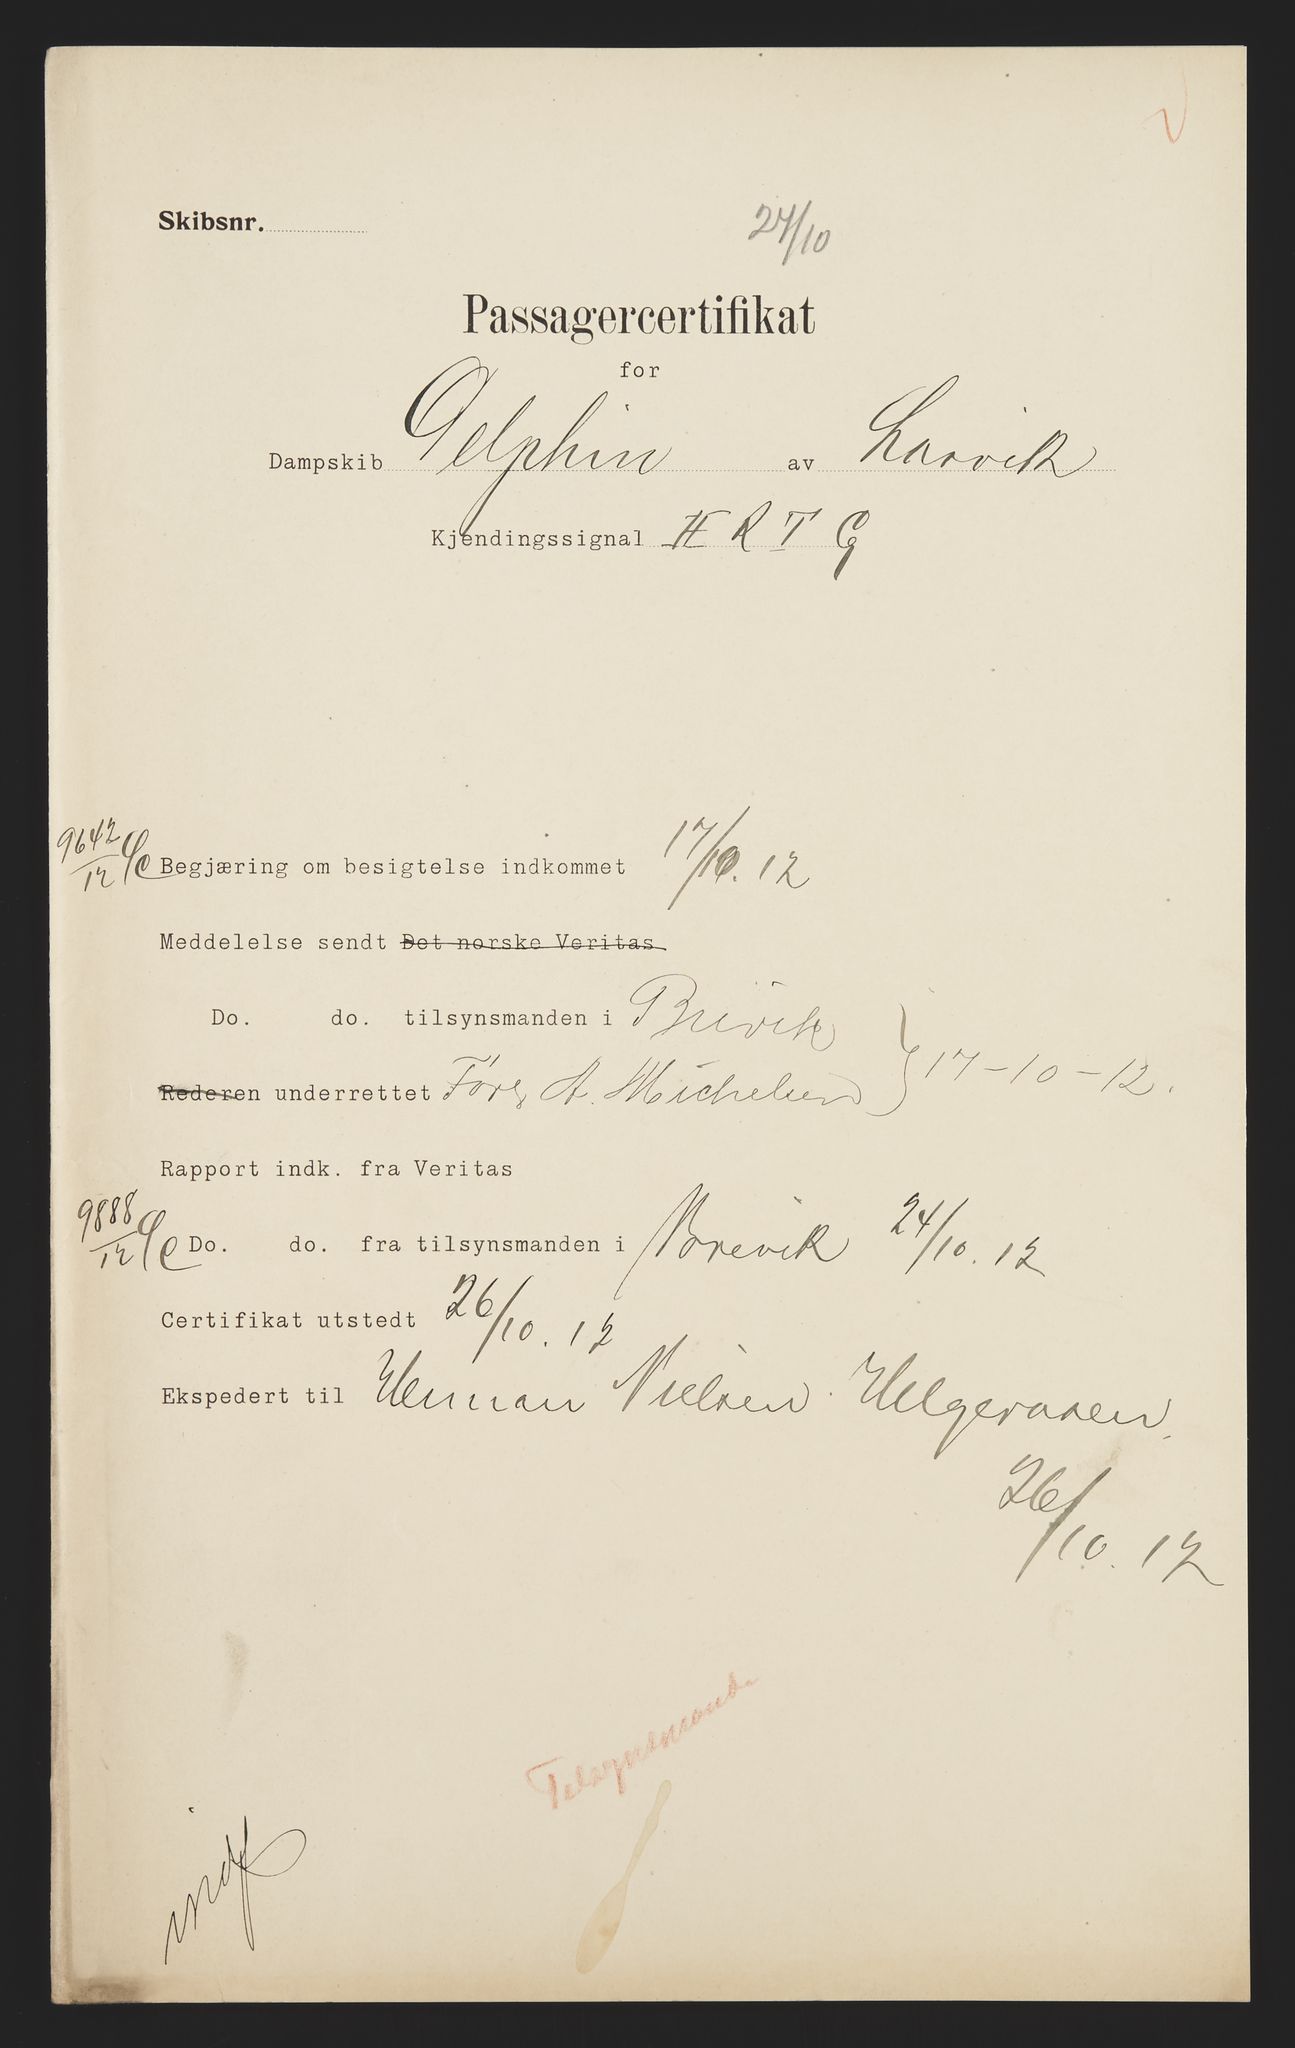 Skibsnr.
24/10
Passagercertifikat
for
Dampskib Delphin av Larvik
Kjendingssignal H R T G
9642/12 Begjæring om besigtelse indkommet 17/10. 12
Meddelelse sendt Det norske Veritas
Do. do. tilsynsmanden i Brevik
Rederen underrettet Fører A. Michelsen } 17-10-12.
Rapport indk. fra Veritas
9888/12 Do. do. fra tilsynsmanden i Brevik 24/10. 12
Certifikat utstedt 26/10. 12
Ekspedert til Herman Nielsen Helgeroaen.
26/10. 12
Tilsynsmand.
indf